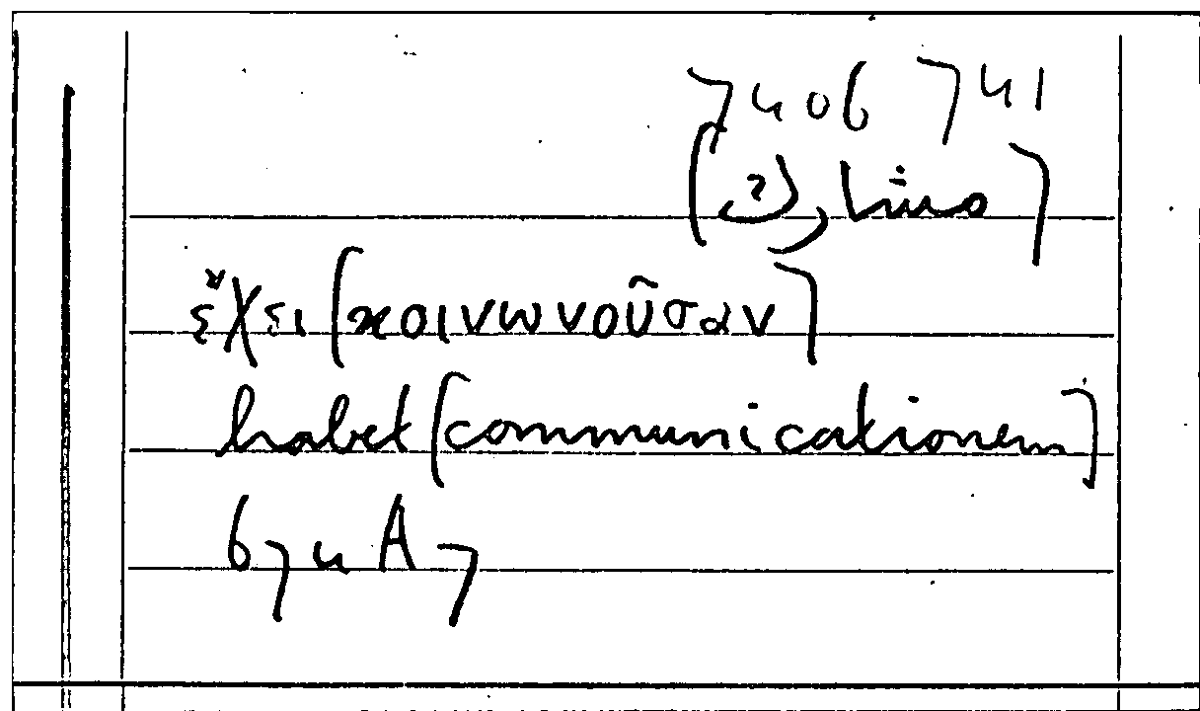 7406 741
ἔχει [κοινωνοῦσαν]
habet [communicationem]
674A7